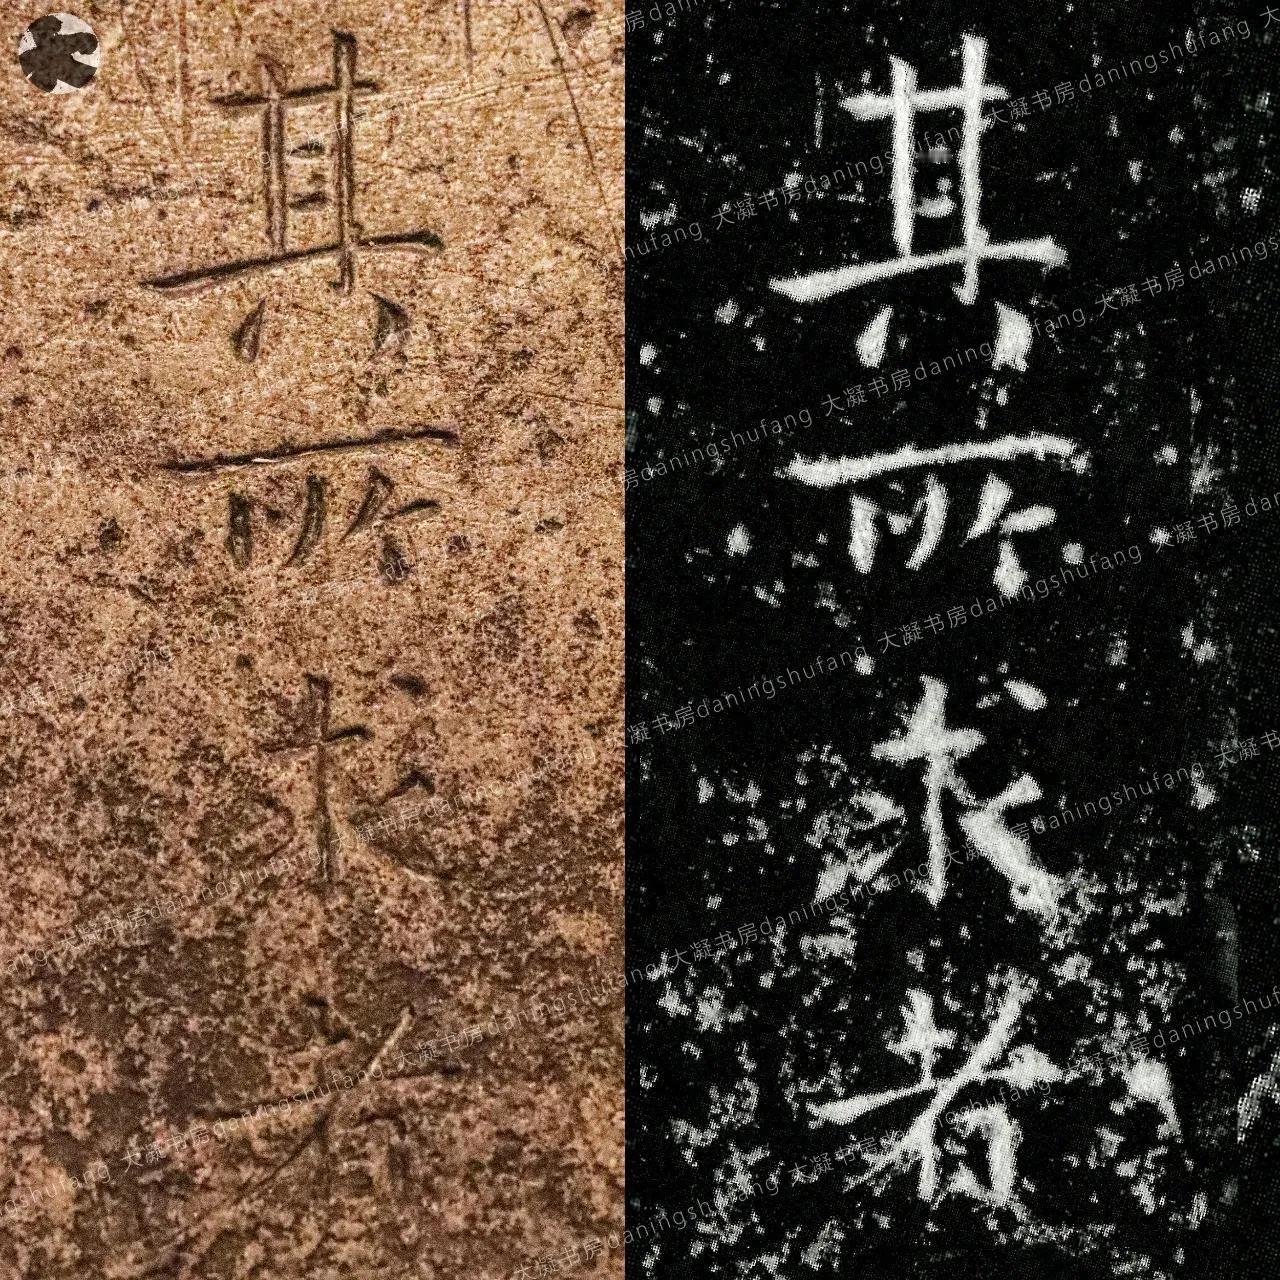 其所求者
其所求者
大凝书房daningshufang